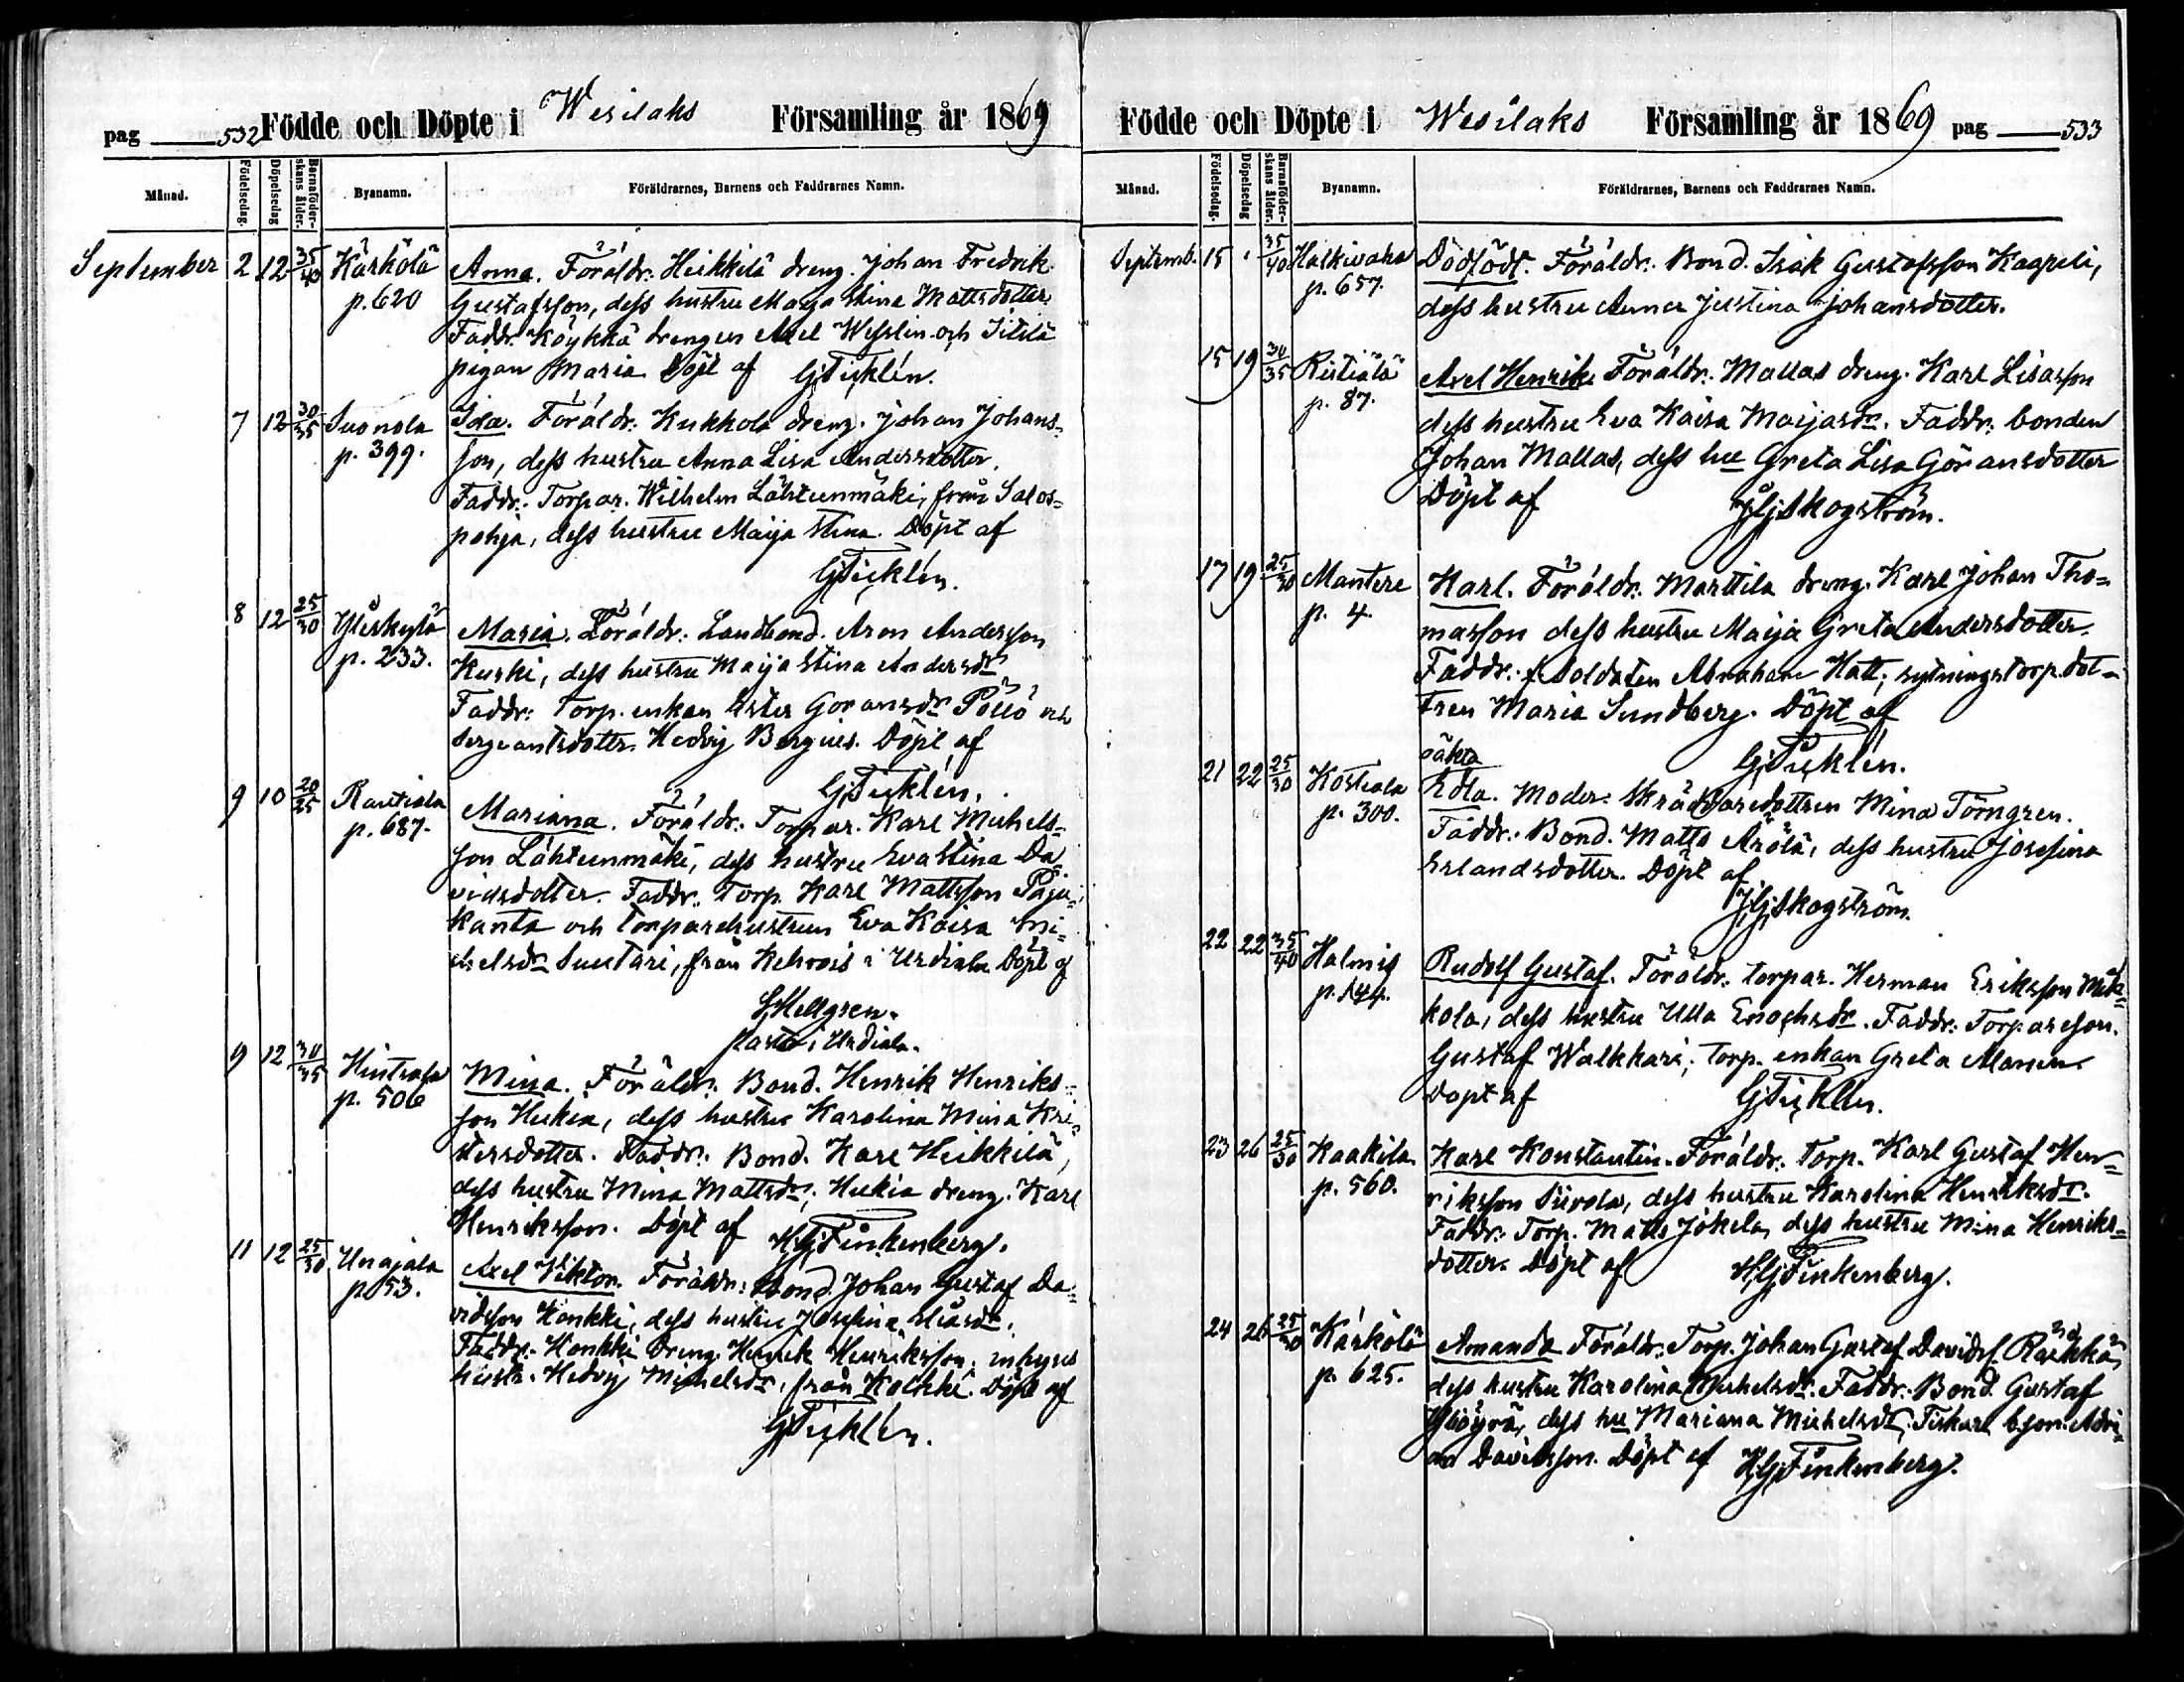 pag 532 Födde och Döpte i Wesilaks Församling år 1869
Månad. Födelsedag. Döpelsedag Barnaföderskans ålder. Byanamn. Föräldrarnes, Barnens och Faddrarnes Namn.
September 2 12 35/40 Kärkölä Anna. Föräldr. Heikkilä dreng. Johan Fredrik
p. 620 Gustafsson, dess hustru Maja Stina Mattsdotter
Faddr. Köykkä drengen Axel Wesslin och Iitilä
pigan Maria. Döpt af GFTicklén.
7 12 30/35 Suonola Ida. Föräldr. Kukkola dreng. Johan Johans-
p. 399. son, dess hustru Anna Lisa Andersdotter.
Faddr. Torpar. Wilhelm Lähteenmäki, från Salos-
pohja, dess hustru Maija Stina. Döpt af
GFTicklén.
8 12 25/30 Ylöskylä Maria. Föräldr. Landbond. Aron Andersson
p. 233. Kurki, dess hustru Maija Stina Andersdr
Faddr. Torp. enkan Ester Göransdr Pöllö och
Sergeantsdottr. Hedvig Bergius. Döpt af
GFTicklén.
9 10 20/25 Rautiala Mariana. Föräldr. Torpar. Karl Michels-
p. 687. son Lähteenmäki, dess hustru Eva Stina Da-
vidsdotter. Faddr. Torp. Karl Mattsson Paju-
kanta och Torparehustrun Eva Kaisa Mi-
chelsdr Suutari, från Kehrois i Urdiala Döpt af
Kellgren.
Past. i Urdiala.
9 12 30/35 Hintsala Mina. Föräldr. Bond. Henrik Henriks-
p. 506 son Hukia, dess hustru Karolina Mina Kri-
stersdotter. Faddr. Bond. Karl Heikkilä,
dess hustru Mina Mattsdr, Hukia dreng. Karl
Henriksson. Döpt af KGFinkenberg.
11 12 25/30 Unajala Axel Viktor. Föräldr. Bond. Johan Gustaf Da-
p. 53. vidsson Honkki, dess hustru Josefina
Faddr. Honkki Dreng Henrik Henriksson, inhyses
hustr. Hedvig Michelsdr, från Kolkki. Döpt af
GFTicklén.
Födde och Döpte i Wesilaks Församling år 1869 pag 533
Månad. Födelsedag. Döpelsedag Barnaföderskans ålder. Byanamn. Föräldrarnes, Barnens och Faddrarnes Namn.
Septemb. 15 35/40 Halkivaha Dödfödt. Föräldr. Bond. Isak Gustafsson Kaapeli,
p. 657. dess hustru Anna Justina Johansdotter.
15 19 30/35 Ristiälä Axel Henrik. Föräldr. Mallas dreng. Karl Lisasson
p. 87. dess hustru Eva Kaisa Maijasdr. Faddr. bonden
Johan Mallas, dess hu Greta Lisa Göransdotter
Döpt af Skogström.
17 19 25/30 Mantere Karl. Föräldr. Marttila dreng. Karl Johan Tho-
p. 4. masson dess hustru Maija Greta Andersdotter.
Faddr. f. Soldaten Abraham Hatt; sytningstorp. dot-
tren Maria Sundberg. Döpt af
GFTicklén.
21 22 25/30 Kostiala oäkta
p. 300. Edla. Moder. Skräddaredottren Mina Törngren.
Faddr. Bond. Matts Ärölä, dess hustru Josefina
Erlandsdotter. Döpt af
Skogström.
22 22 35/40 Halmis Rudolf Gustaf. Föräldr. torpar. Herman Eriksson Mik-
p. 144. kola, dess hustru Ulla Enochsdr. Faddr. Torpareson.
Gustaf Walkkari; Torp. enkan Greta Manen.
Döpt af GFTicklén.
23 26 25/30 Kaakila Karl Konstantin. Föräldr. Torp. Karl Gustaf Hen-
p. 560. riksson Siivola, dess hustru Karolina Henriksdr.
Faddr. Torp. Matts Jokela, dess hustru Mina Henriks-
dotter. Döpt af KGFinkenberg.
24 26 25/30 Kärkölä Amanda Föräldr. Torp. Johan Gustaf Davidss. Räikkä,
p. 625. dess hustru Karolina Michelsdr. Faddr. Bond. Gustaf
dess hu Mariana Michelsdr, b.son. Adri-
an Davidsson. Döpt af KGFinkenberg.